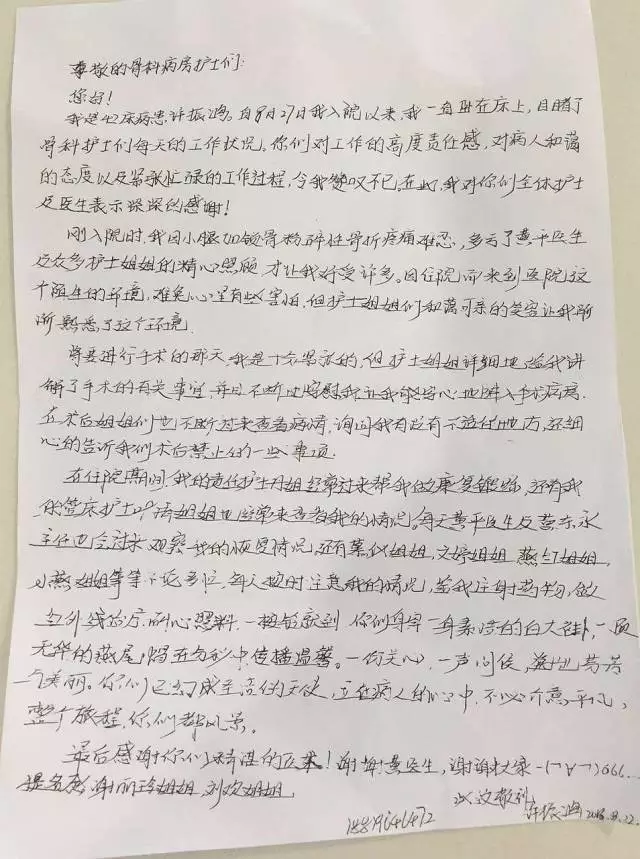 尊敬的骨科病房护士们:
您好!
我是42床病患许振鸿。自8月27日我入院以来,我一直卧在床上,目睹了
骨科护士们每天的工作状况。你们对工作的高度责任感,对病人和蔼
的态度以及紧张忙碌的工作过程,令我赞叹不已。在此,我对你们全体护士
及医生表示深深的感谢!
刚入院时,我因小腿加锁骨粉碎性骨折疼痛难忍,多亏了黄平医生
及众多护士姐姐的精心照顾,才让我好受许多。因住院而来到医院这
个陌生的环境,难免心里有些害怕,但护士姐姐们和蔼可亲的笑容让我渐
渐熟悉了这个环境.
将要进行手术的那天,我是十分紧张的,但护士姐姐详细地给我讲
解了手术的有关事宜,并且不断的安慰我,让我能安心地进入手术病房.
在术后姐姐们也不断过来查看病情,询问我有没有不适的地方,还细
心的告诉我们术后禁止的一些事项.
在住院期间,我的责任护士丹姐经常过来帮我做康复锻炼,还有我
的管床护士 姐姐也经常来查看我的情况。每天黄平医生及黄东永
主任也会过来观察我的恢复情况,还有慕仪姐姐,文婷姐姐,燕红姐姐,
小燕姐姐等等不论多忙,每天按时注意我的情况,给我注射药物,做
红外线治疗,耐心照料。一想 就到你们身穿一身素洁的白大褂,一顶
无华的燕尾帽在匆匆中传播温馨。一份关心,一声问候,溢出芬芳
与美丽。你们已幻成圣洁的天使,立在病人的心中,不必介意平凡,
整个旅程,你们都风景。
最后感谢你们精湛的医术!谢谢黄医生,谢谢 999...
谢丽玲姐姐,刘欢姐姐
此致敬礼
许振鸿 2018.9.22.
18819641472